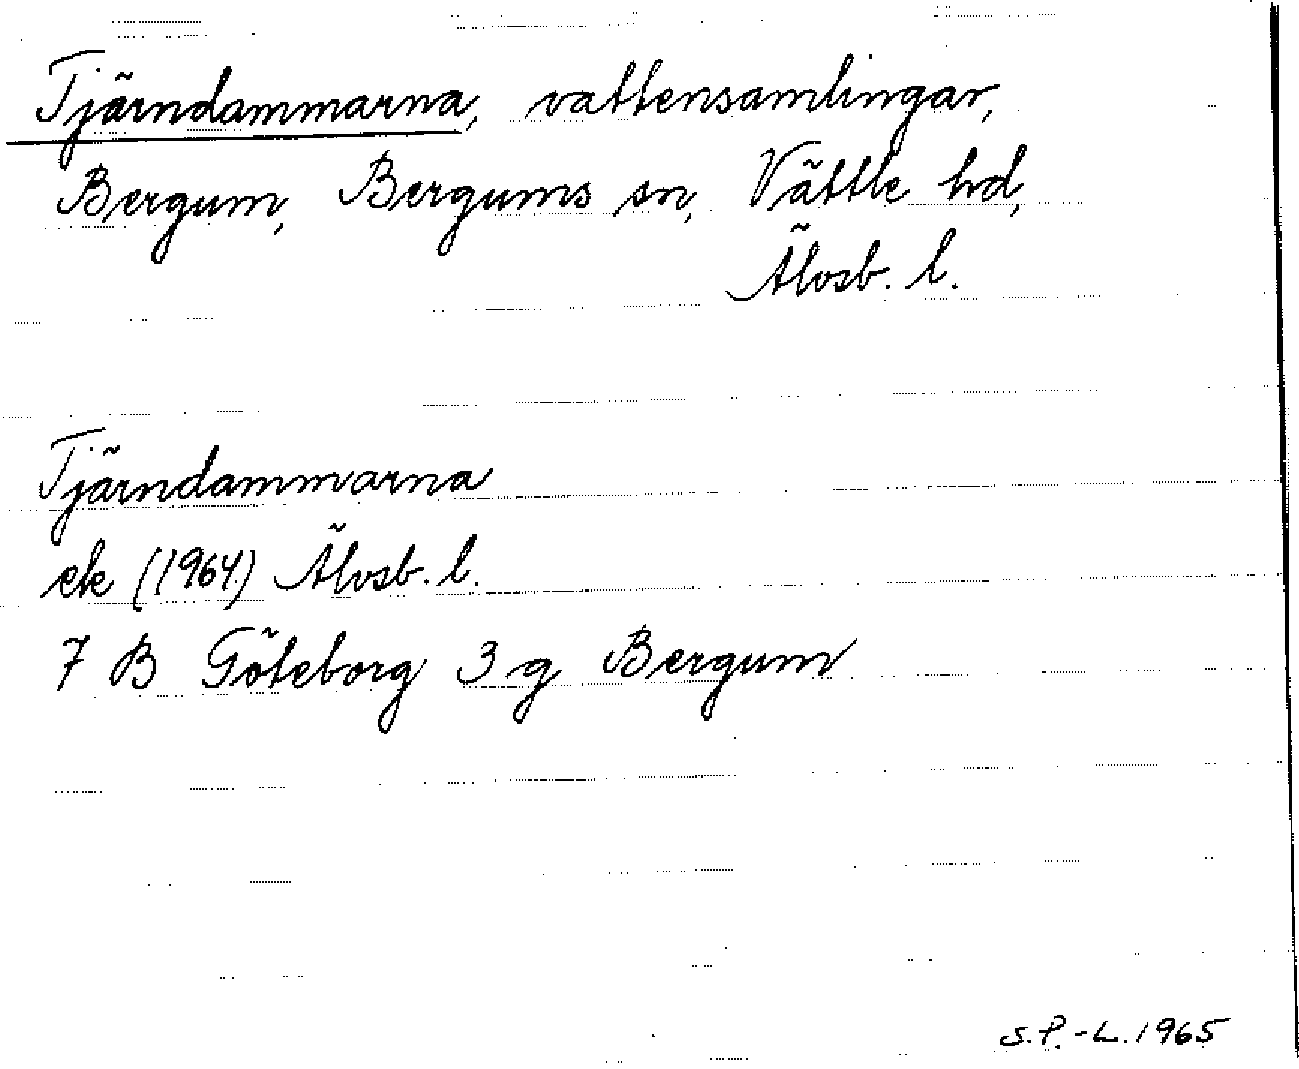 Tjärndammarna, vattensamlingar,
Bergum, Bergums sn, Vättle hd,
Älvsb. l.
Tjärndammarna
ek (1964) Älvsb. l.
7 B Göteborg 3 g Bergum
S.P.-L. 1965